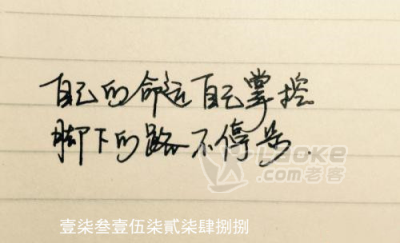 自己的命运自己掌控
脚下的路不停步.
Laoke
.com老客
壹柒叁壹伍柒貳柒肆捌捌